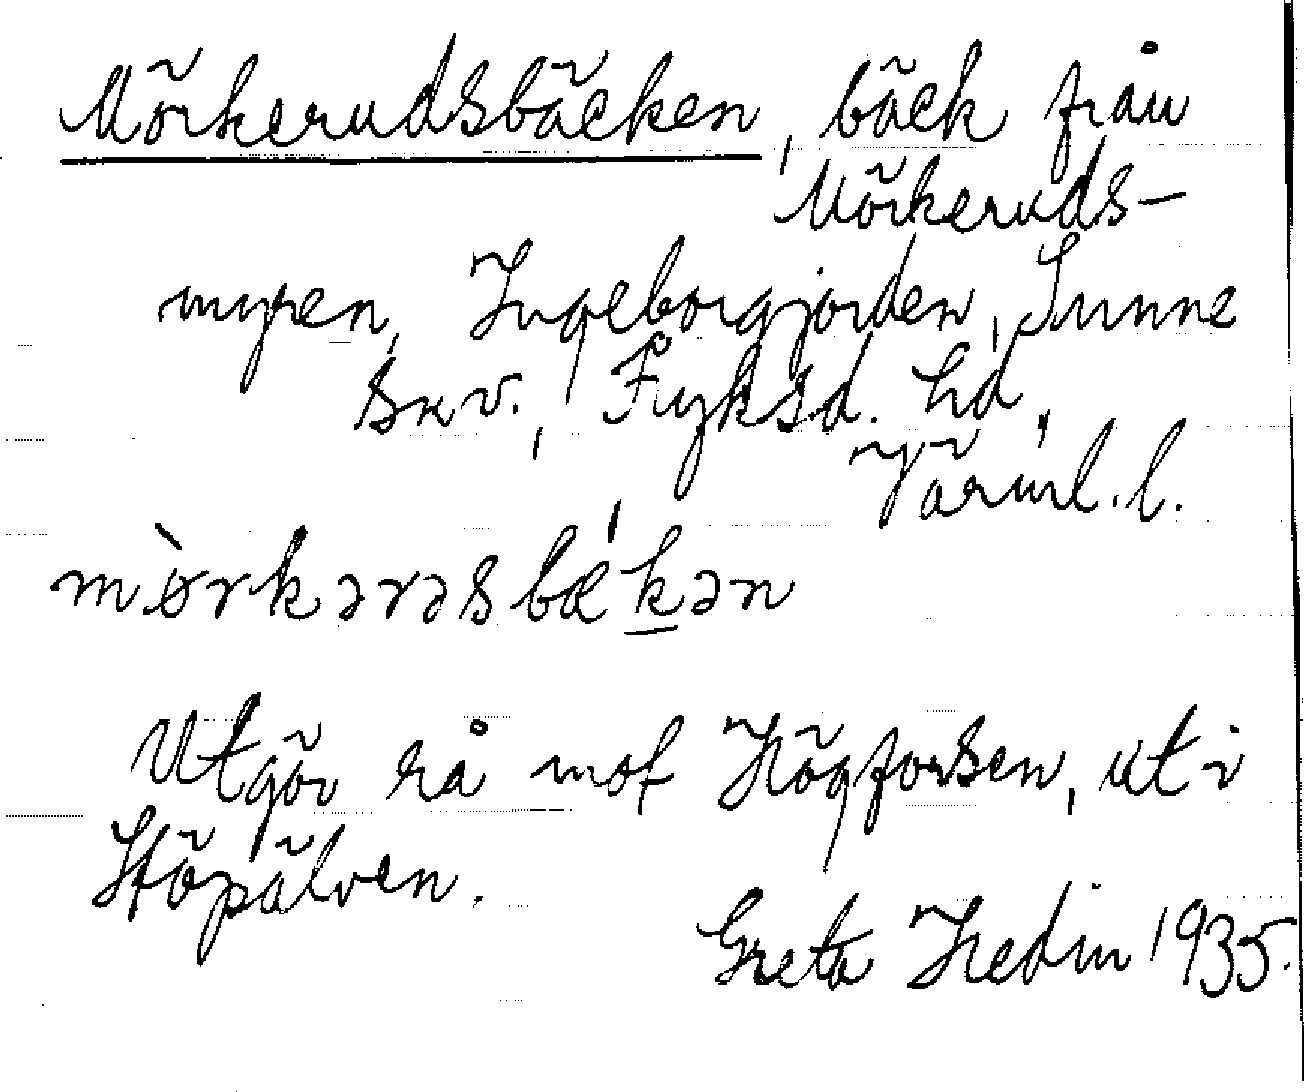 Mörkerudsbäcken, bäck från
Mörkeruds-
myren, Ingeborgjorden, Sunne
skv., Fryksd. hd,
Värml. l.
mòrkərəsbækən
Utgör rå mot Högforsen, ut i
Stöpälven.
Greta Hedin 1935.